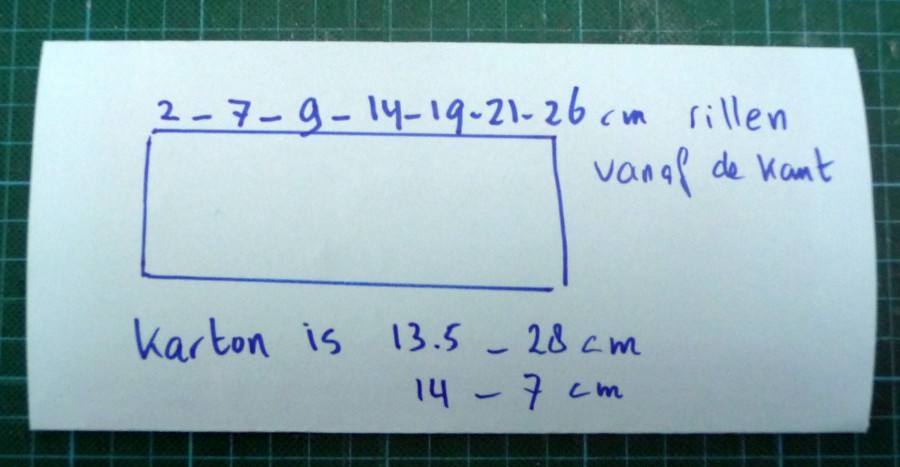 2 - 7 - 9 - 14 - 19 - 21 - 26 cm rillen
vanaf de kant
Karton is 13.5 - 28 cm
14 - 7 cm